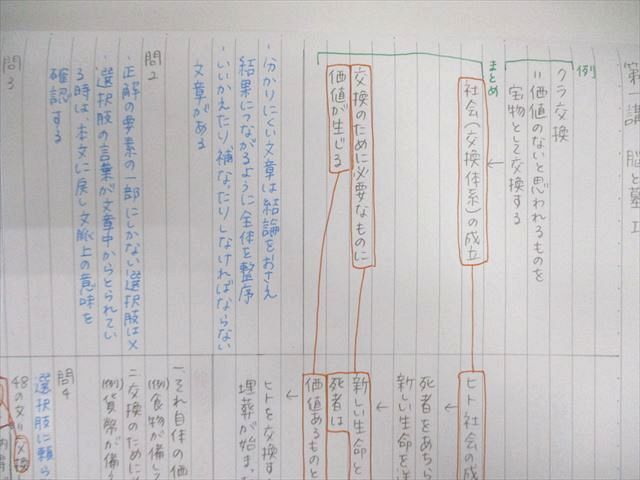 第一講 脳と墓I
例
クラ交換
=価値のないと思われるものを
宝物として交換する
↓
社会(交換体系)の成立
まとめ
交換のために必要なものに
価値が生じる
・分かりにくい文章は結論をおさえ
結果につながるように全体を整序
・いいかえたり、補なったりしなければならない
文章がある
問2
・正解の要素の一部にしかない選択肢は×
・選択肢の言葉が文章中からとられてい
る時は、本文に戻し文脈上の意味を
確認する
問3
ヒト社会の成
↓
死者をあちら
新しい生命を
↓
新しい生命と
死者は
価値あるものと
↓
ヒトを交換す
埋葬が始ま
一それ自体の価
(例)食物が備して
二交換のために
(例)貨幣が備
問4
選択肢に頼ら
48の文=交換